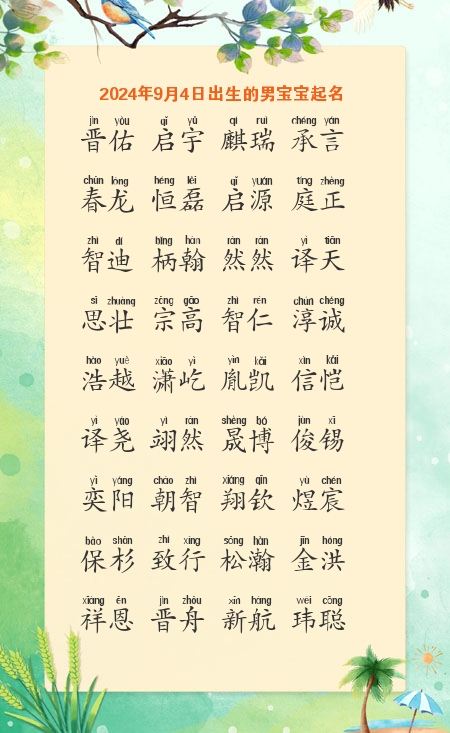 2024年9月4日出生的男宝宝起名
jìn yòu qǐ yǔ qí ruì chéng yán
晋佑 启宇 麒瑞 承言
chūn lóng héng lěi qǐ yuán tíng zhèng
春龙 恒磊 启源 庭正
zhì dí bǐng hàn rán rán yì tiān
智迪 柄翰 然然 译天
sī zhuàng zōng gāo zhì rén chún chéng
思壮 宗高 智仁 淳诚
hào yuè xiāo yì yìn kǎi xìn kǎi
浩越 潇屹 胤凯 信恺
yì yáo yì rán shèng bó jùn xī
译尧 翊然 晟博 俊锡
yì yáng cháo zhì xiáng qīn yù chén
奕阳 朝智 翔钦 煜宸
bǎo shān zhì xíng sōng hàn jīn hóng
保杉 致行 松瀚 金洪
xiáng ēn jìn zhōu xīn háng wěi cōng
祥恩 晋舟 新航 玮聪